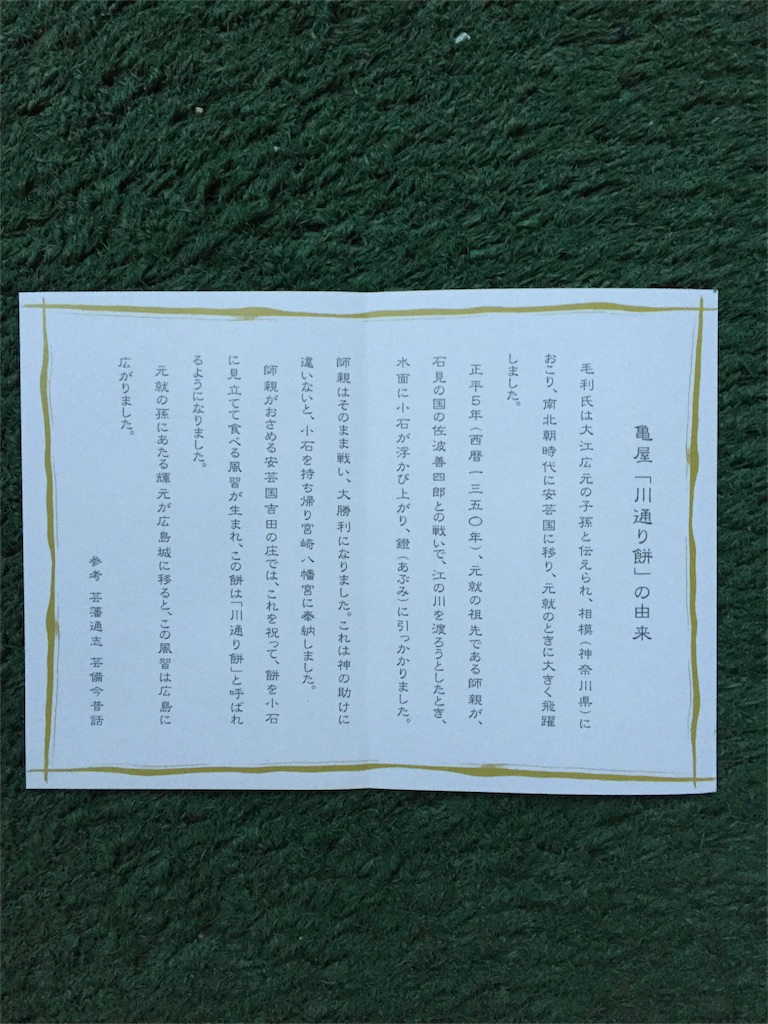 亀屋「川通り餅」の由来
毛利氏は大江広元の子孫と伝えられ、相模(神奈川県)に
おこり、南北朝時代に安芸国に移り、元就のときに大きく飛躍
しました。
正平5年(西暦一三五〇年)、元就の祖先である師親が、
石見の国の佐波善四郎との戦いで、江の川を渡ろうとしたとき、
水面に小石が浮かび上がり、鐙(あぶみ)に引っかかりました。
師親はそのまま戦い、大勝利になりました。これは神の助けに
違いないと、小石を持ち帰り宮崎八幡宮に奉納しました。
師親がおさめる安芸国吉田の庄では、これを祝って、餅を小石
に見立てて食べる風習が生まれ、この餅は「川通り餅」と呼ばれ
るようになりました。
元就の孫にあたる輝元が広島城に移ると、この風習は広島に
広がりました。
参考 芸藩通志 芸備今昔話